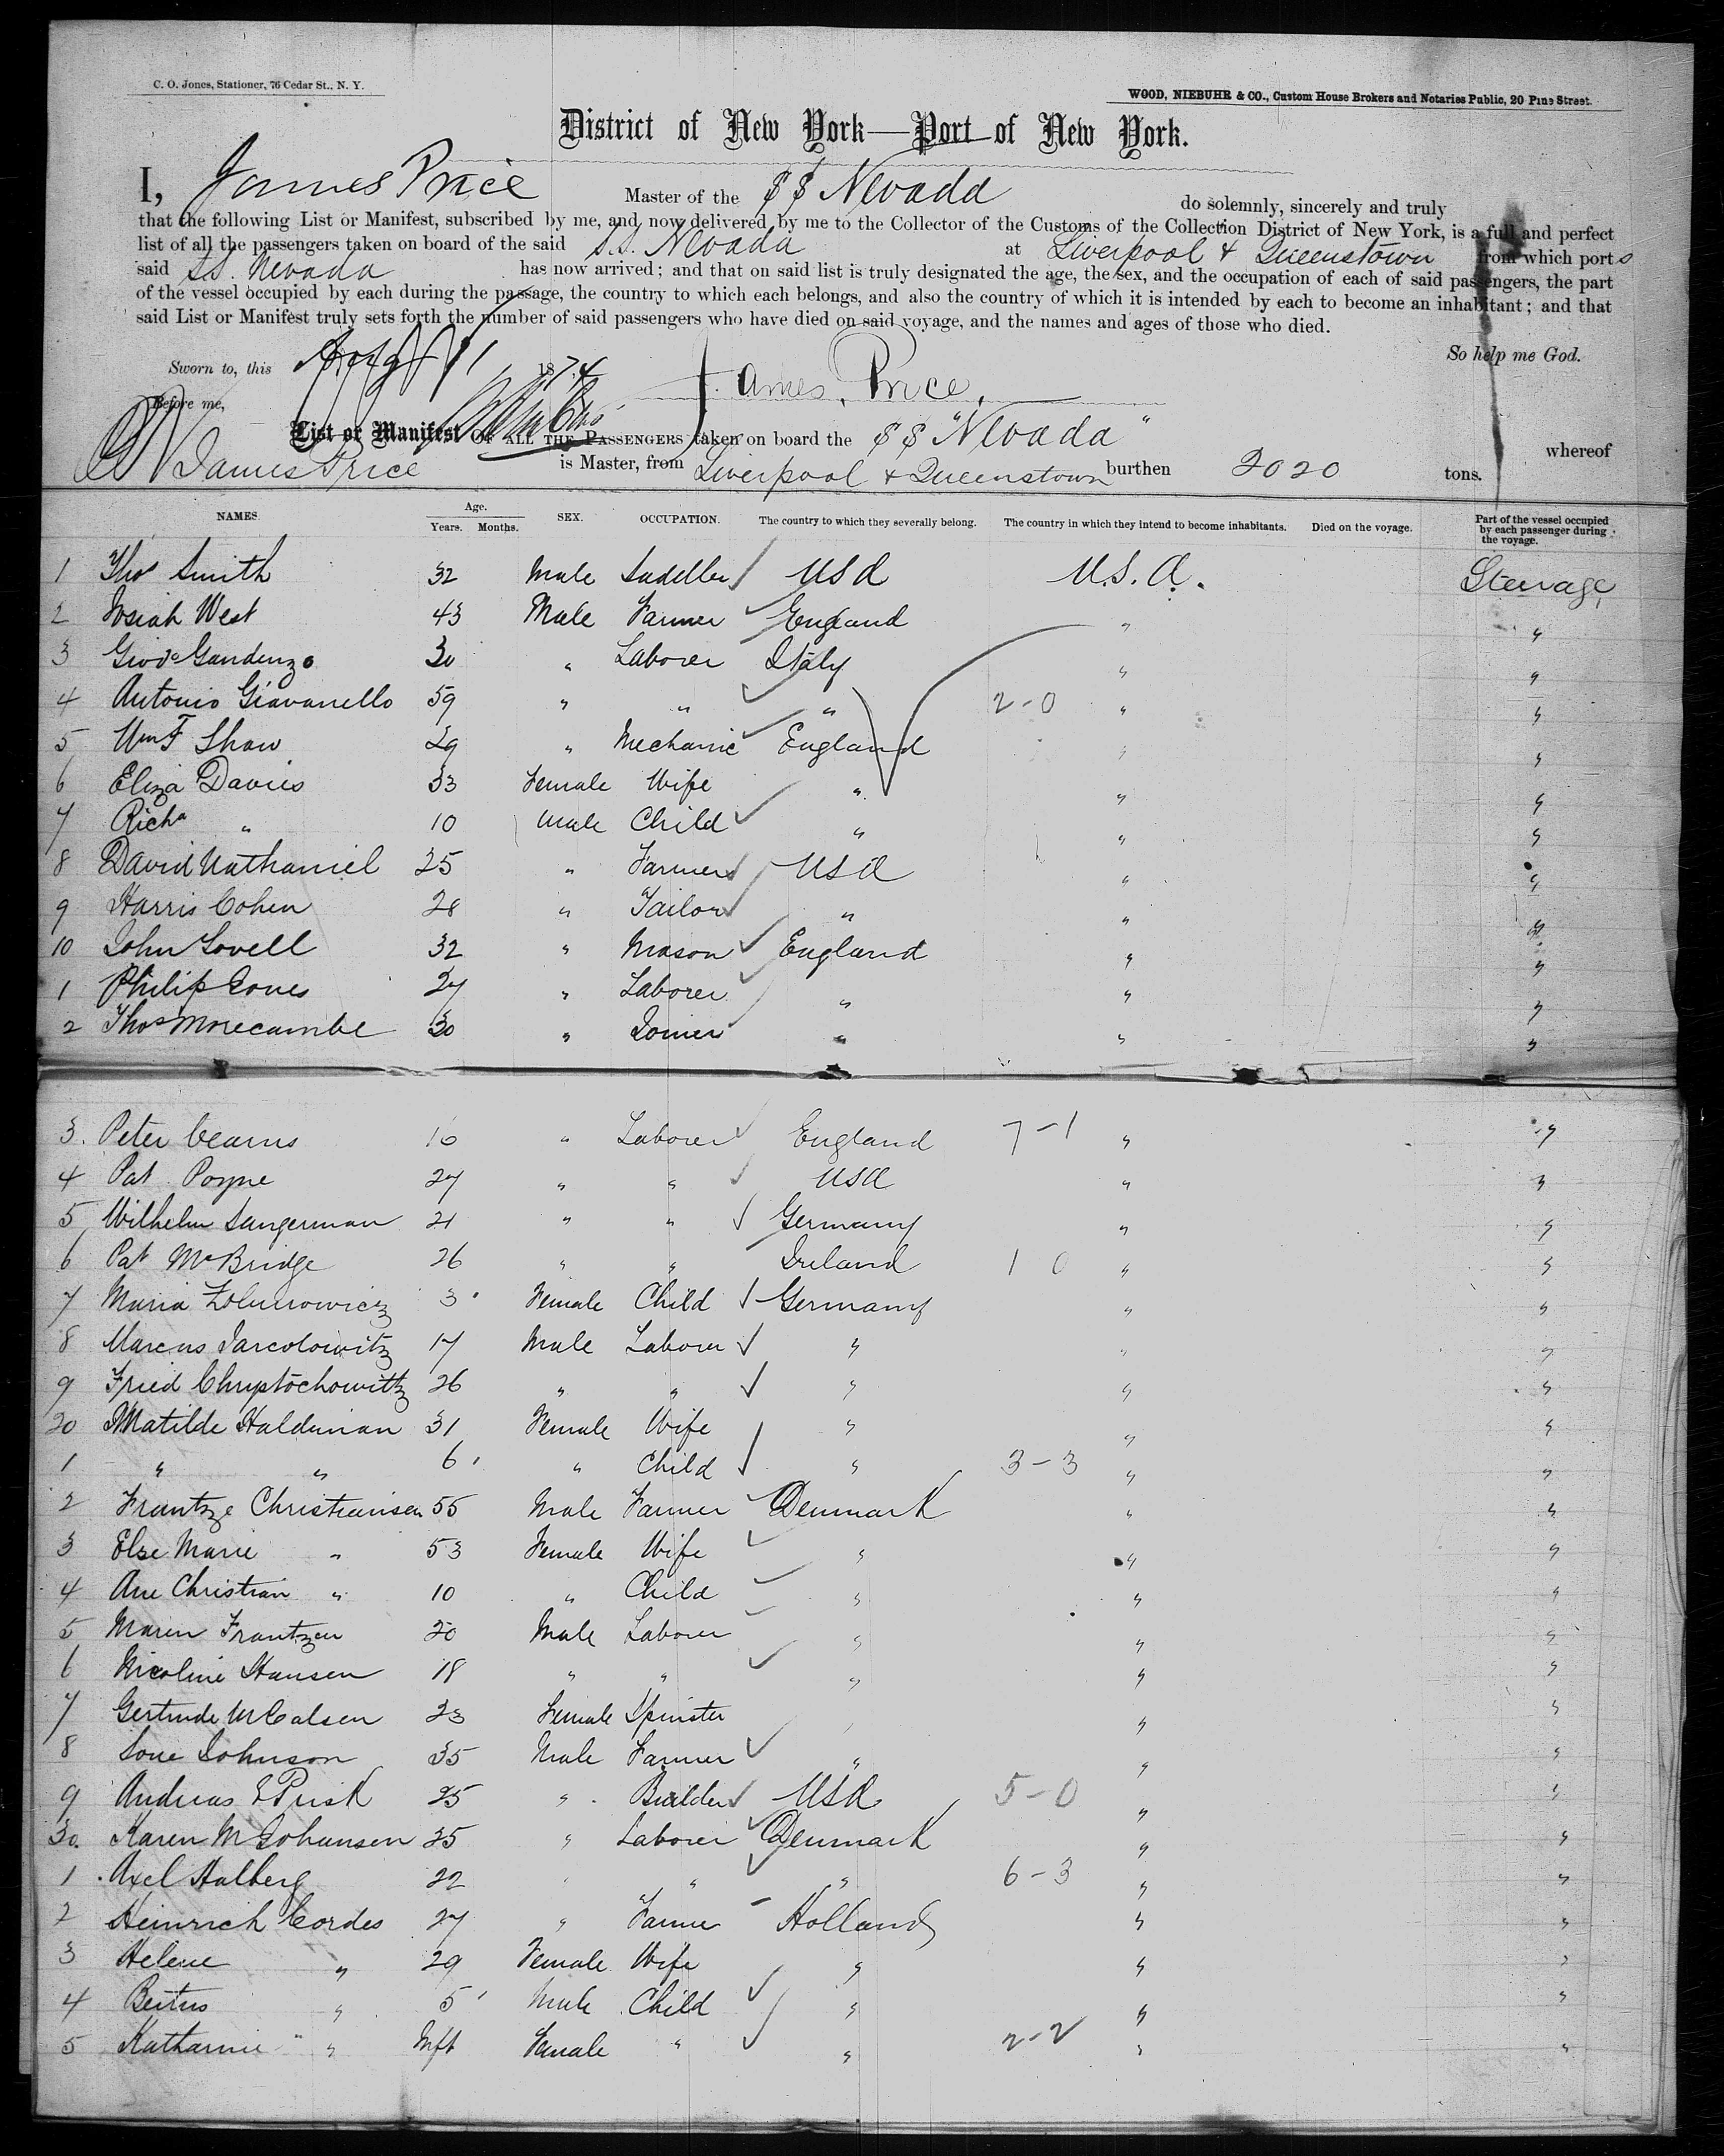 C. O. Jones, Stationer, 76 Cedar St., N. Y.
WOOD, NIEBUHR & CO., Custom House Brokers and Notaries Public, 20 Pine Street.
District of New York—Port of New York.
I, James Price Master of the SS Nevada do solemnly, sincerely and truly
that the following List or Manifest, subscribed by me, and now delivered by me to the Collector of the Customs of the Collection District of New York, is a full and perfect
list of all the passengers taken on board of the said S.S. Nevada at Liverpool & Queenstown from which ports
said S.S. Nevada has now arrived; and that on said list is truly designated the age, the sex, and the occupation of each of said passengers, the part
of the vessel occupied by each during the passage, the country to which each belongs, and also the country of which it is intended by each to become an inhabitant; and that
said List or Manifest truly sets forth the number of said passengers who have died on said voyage, and the names and ages of those who died.
So help me God.
Sworn to, this 1874
James Price
Before me,
List or Manifest OF ALL THE PASSENGERS taken on board the SS "Nevada" whereof
James Price is Master, from Liverpool & Queenstown burthen 2020 tons.
NAMES. Age. Years. Months. SEX. OCCUPATION. The country to which they severally belong. The country in which they intend to become inhabitants. Died on the voyage. Part of the vessel occupied by each passenger during the voyage.
1 Thos Smith 32 Male Sadeller USA U.S.A. Steerage
2 Josiah West 43 Male Farmer England " "
3 Giovo Gaudenzo 30 " Laborer Italy " "
4 Antonio Giavanello 59 " " " 2-0 " "
5 Wm F Shaw 29 " Mechanic England " "
6 Eliza Davies 33 Female Wife " " "
7 Richd " 10 Male Child " " "
8 David Nathaniel 25 " Farmer USA " "
9 Harris Cohen 28 " Tailor " " "
10 John Lovell 32 " Mason England " "
1 Philip Eones 27 " Laborer " " "
2 Thos Morecambe 30 " Joiner " " "
3. Peter Cearns 16 " Laborer England 7-1 " "
4 Pat Poyne 27 " " USA " "
5 Wilhelm Sangerman 21 " " Germany " "
6 Pat McBridge 26 " " Ireland 1 0 " "
7 Maria 3 Female Child Germany " "
8 Marcus Jarcolowitz 17 Male Laborer " " "
9 Fried Chryptochowittz 26 " " " " "
20 Matilde Haldeman 31 Female Wife " " "
1 " " 6 " Child " 3-3 " "
2 Frantze Christiansen 55 Male Farmer Denmark " "
3 Else Marie " 53 Female Wife " " "
4 Ane Christian " 10 " Child " " "
5 Maren Frantzen 20 Male Laborer " " "
6 Nicoline Hansen 18 " " " " "
7 Gertrude M Calsen 23 Female Spinster " " "
8 Sone Johnson 35 Male Farmer " " "
9 Andreas E Prisk 25 " Builder USA 5-0 " "
30. Karen M Johansen 25 " Laborer Denmark " "
1 Axel Halberg 22 " " " 6-3 " "
2 Heinrich Cordes 27 " Farmer Holland " "
3 Helene " 29 Female Wife " " "
4 Bertus " 5 Male Child " " "
5 Katharine " " Inft Female " " 2-2 " "